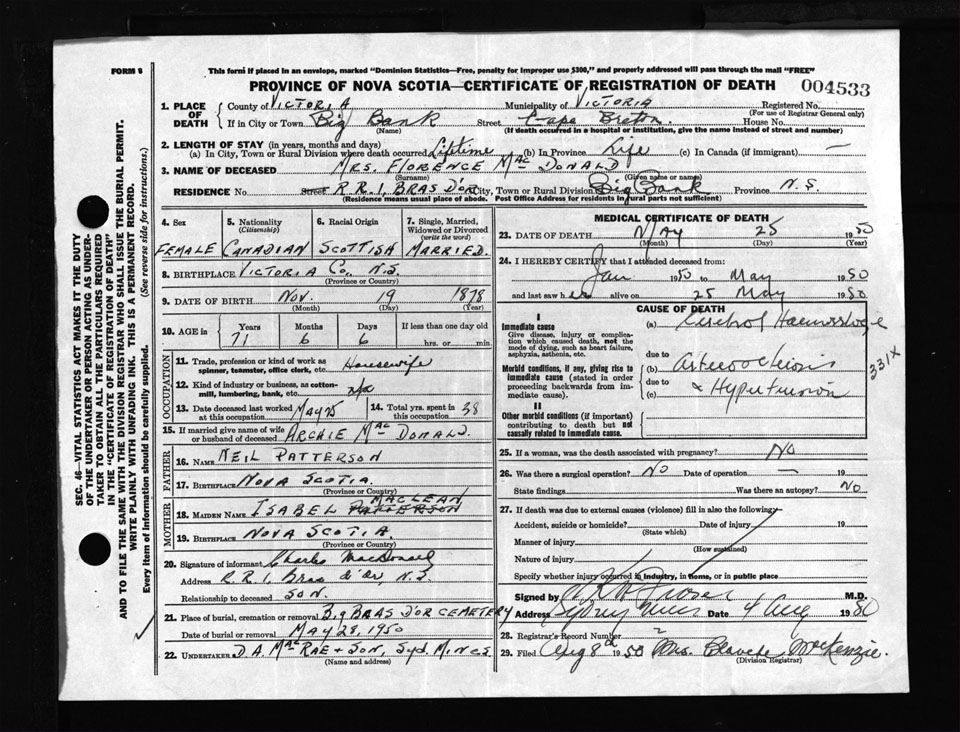 FORM 6
This form if placed in an envelope, marked "Dominion Statistics—Free, penalty for improper use $300," and properly addressed will pass through the mail "FREE"
PROVINCE OF NOVA SCOTIA—CERTIFICATE OF REGISTRATION OF DEATH 004533
1. PLACE OF DEATH { County of VICTORIA Municipality of VICTORIA Registered No.
(For use of Registrar General only)
If in City or Town Big Bank Street Cape Breton House No.
(Name) (If death occurred in a hospital or institution, give the name instead of street and number)
2. LENGTH OF STAY (in years, months and days)
(a) In City, Town or Rural Division where death occurred Lifetime (b) In Province Life (c) In Canada (if immigrant) —
3. NAME OF DECEASED MRS. FLORENCE MacDONALD
(Surname) (Given name or names)
RESIDENCE No. Street R.R.1, BRAS D'OR City, Town or Rural Division Big Bank Province N.S.
(Residence means usual place of abode. Post Office Address for residents in rural parts not sufficient)
4. Sex
FEMALE
5. Nationality
(Citizenship)
CANADIAN
6. Racial Origin
SCOTTISH
7. Single, Married, Widowed or Divorced
(write the word)
MARRIED.
8. BIRTHPLACE VICTORIA Co., N.S.
(Province or Country)
9. DATE OF BIRTH Nov. 19 1878
(Month) (Day) (Year)
10. AGE in Years Months Days If less than one day old
71 6 6 hrs. or min.
OCCUPATION
11. Trade, profession or kind of work as spinner, teamster, office clerk, etc. Housewife
12. Kind of industry or business, as cotton-mill, lumbering, bank, etc. n/a
13. Date deceased last worked at this occupation MAY 25
14. Total yrs. spent in this occupation 38
15. If married give name of wife or husband of deceased ARCHIE MacDONALD.
FATHER
16. NAME NEIL PATTERSON
17. BIRTHPLACE NOVA SCOTIA.
(Province or Country)
MOTHER
MACLEAN
18. MAIDEN NAME ISABEL PATTERSON
19. BIRTHPLACE NOVA SCOTIA.
(Province or Country)
20. Signature of informant Charles MacDonald
Address R.R.1, Bras d'Or, N.S.
Relationship to deceased SON.
21. Place of burial, cremation or removal BIG BRAS D'OR CEMETERY
Date of burial or removal MAY 28, 1950
22. UNDERTAKER D.A. MacRAE + SON, Syd. Mines
(Name and address)
MEDICAL CERTIFICATE OF DEATH
23. DATE OF DEATH MAY 25 1950
(Month) (Day) (Year)
24. I HEREBY CERTIFY that I attended deceased from:
Jan 1950 to May 1950
and last saw her alive on 25 May 1950
CAUSE OF DEATH
I
Immediate cause
Give disease, injury or complication which caused death, not the mode of dying, such as heart failure, asphyxia, asthenia, etc.
(a) Cerebral Haemorrhage
due to
Morbid conditions, if any, giving rise to immediate cause (stated in order proceeding backwards from immediate cause).
(b) Arteriosclerosis
due to
(c) + Hypertension
331X
II
Other morbid conditions (if important) contributing to death but not causally related to immediate cause.
25. If a woman, was the death associated with pregnancy? No
26. Was there a surgical operation? No Date of operation — 19
State findings Was there an autopsy? No
27. If death was due to external causes (violence) fill in also the following:
Accident, suicide or homicide? Date of injury 19
(State which)
Manner of injury
(How sustained)
Nature of injury
Specify whether injury occurred in industry, in home, or in public place
Signed by Fraser M.D.
Address Sydney Mines Date 4 Aug 1950
28. Registrar's Record Number 2
29. Filed Aug 8th 1950 Mrs. McKenzie.
(Division Registrar)
SEC. 46—VITAL STATISTICS ACT MAKES IT THE DUTY
OF THE UNDERTAKER OR PERSON ACTING AS UNDERTAKER TO OBTAIN ALL THE PARTICULARS REQUIRED
IN THE "CERTIFICATE OF REGISTRATION OF DEATH"
AND TO FILE THE SAME WITH THE DIVISION REGISTRAR WHO SHALL ISSUE THE BURIAL PERMIT.
WRITE PLAINLY WITH UNFADING INK. THIS IS A PERMANENT RECORD.
Every item of information should be carefully supplied. (See reverse side for instructions.)